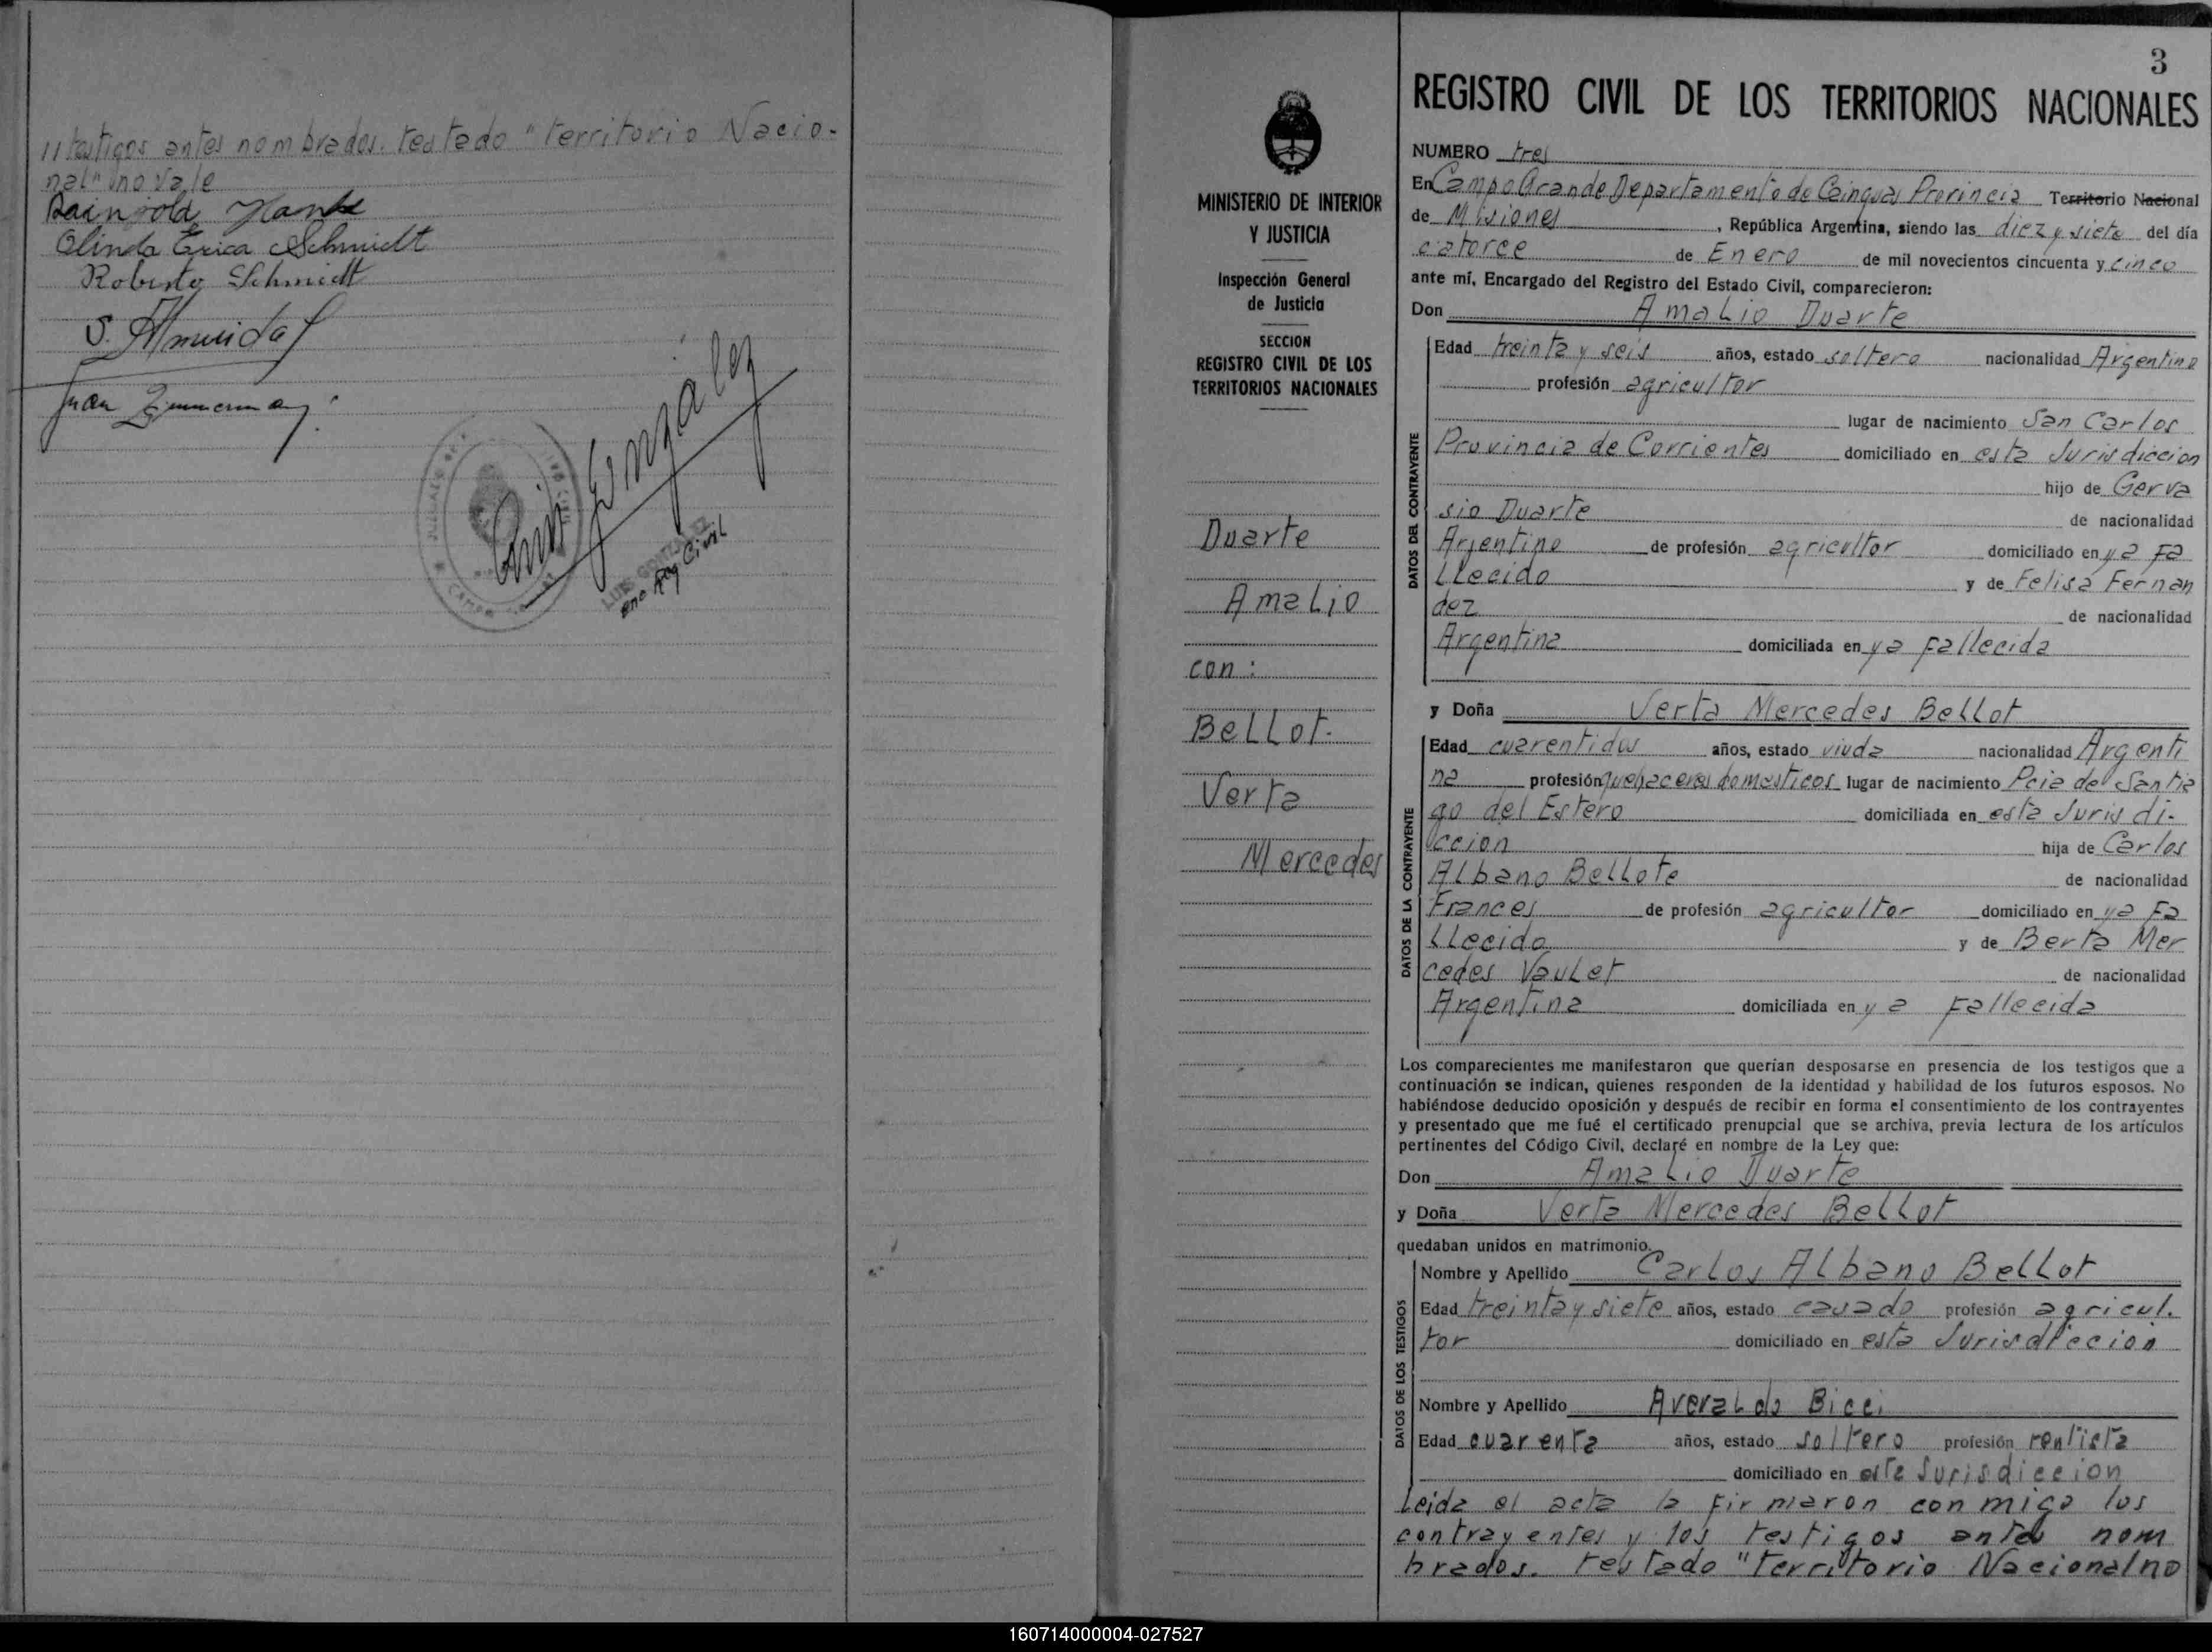 //testigos antes nombrados. testado "territorio Nacio-
nal" no vale
Olinda Erica Schmidt
Roberto Schmidt
S. Almeida
Juan Zimmerman
Luis González
LUIS GONZALEZ
enc Reg Civil
CAMPO
3
REGISTRO CIVIL DE LOS TERRITORIOS NACIONALES
MINISTERIO DE INTERIOR
Y JUSTICIA
Inspección General
de Justicia
SECCION
REGISTRO CIVIL DE LOS
TERRITORIOS NACIONALES
Duarte
Amalio
con:
Bellot.
Verta
Mercedes
NUMERO tres
En Campo Grande Departamento de Cainguas Provincia Territorio Nacional
de Misiones, República Argentina, siendo las diez y siete del día
catorce de Enero de mil novecientos cincuenta y cinco
ante mí, Encargado del Registro del Estado Civil, comparecieron:
Don Amalio Duarte
DATOS DEL CONTRAYENTE
Edad treinta y seis años, estado soltero nacionalidad Argentino
profesión agricultor
lugar de nacimiento San Carlos
Provincia de Corrientes domiciliado en esta Jurisdiccion
hijo de Gerva
sio Duarte de nacionalidad
Argentino de profesión agricultor domiciliado en ya Fa
llecido y de Felisa Fernan
dez de nacionalidad
Argentina domiciliada en ya Fallecida
y Doña Verta Mercedes Bellot
DATOS DE LA CONTRAYENTE
Edad cuarentidos años, estado viuda nacionalidad Argenti
na profesión quehaceres domesticos lugar de nacimiento Pcia de Santia
go del Estero domiciliada en esta Jurisdi-
ccion hija de Carlos
Albano Bellote de nacionalidad
Frances de profesión agricultor domiciliado en ya Fa
llecido y de Berta Mer
cedes Vaulet de nacionalidad
Argentina domiciliada en ya Fallecida
Los comparecientes me manifestaron que querían desposarse en presencia de los testigos que a
continuación se indican, quienes responden de la identidad y habilidad de los futuros esposos. No
habiéndose deducido oposición y después de recibir en forma el consentimiento de los contrayentes
y presentado que me fué el certificado prenupcial que se archiva, previa lectura de los artículos
pertinentes del Código Civil, declaré en nombre de la Ley que:
Don Amalio Duarte
y Doña Verta Mercedes Bellot
quedaban unidos en matrimonio.
DATOS DE LOS TESTIGOS
Nombre y Apellido Carlos Albano Bellot
Edad treinta y siete años, estado casado profesión agricul.
tor domiciliado en esta Jurisdiccion
Nombre y Apellido Averaldo Bicci
Edad cuarenta años, estado soltero profesión rentista
domiciliado en esta Jurisdiccion
Leida el acta la Firmaron conmigo los
contrayentes y los testigos antes nom
brados. testado "territorio Nacional no
160714000004-027527